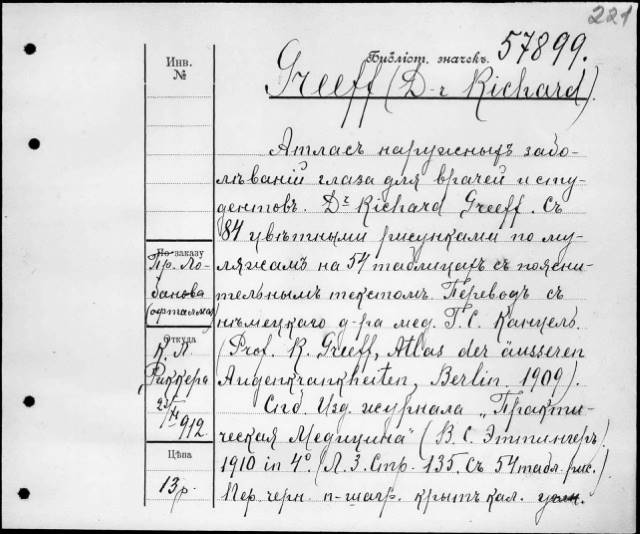 221
Библіот. значекъ. 57899.
Инв.
№
Greeff (D-r Richard).
Атласъ наружныхъ забо-
лѣваній глаза для врачей и сту-
дентовъ. Dr Richard Greeff. Съ
84 цвѣтными рисунками по му-
ляжамъ на 54 таблицахъ съ поясни-
тельнымъ текстомъ. Переводъ съ
нѣмецкаго д-ра мед. Г. С. Канцель.
(Prof. R. Greeff, Atlas der äusseren
Augenkrankheiten, Berlin. 1909).
Спб. Изд. журнала „Практи-
ческая Медицина" (В. С. Эттингеръ)
1910 in 4°. (Л. 3. Стр. 135. съ 54 табл. рис.)
Пер. черн. п-шагр. крытъ кал.
По заказу
Пр. Ло-
банова
(офталмол)
Откуда
К. Л.
Риккера
912
Цѣна
13 р.